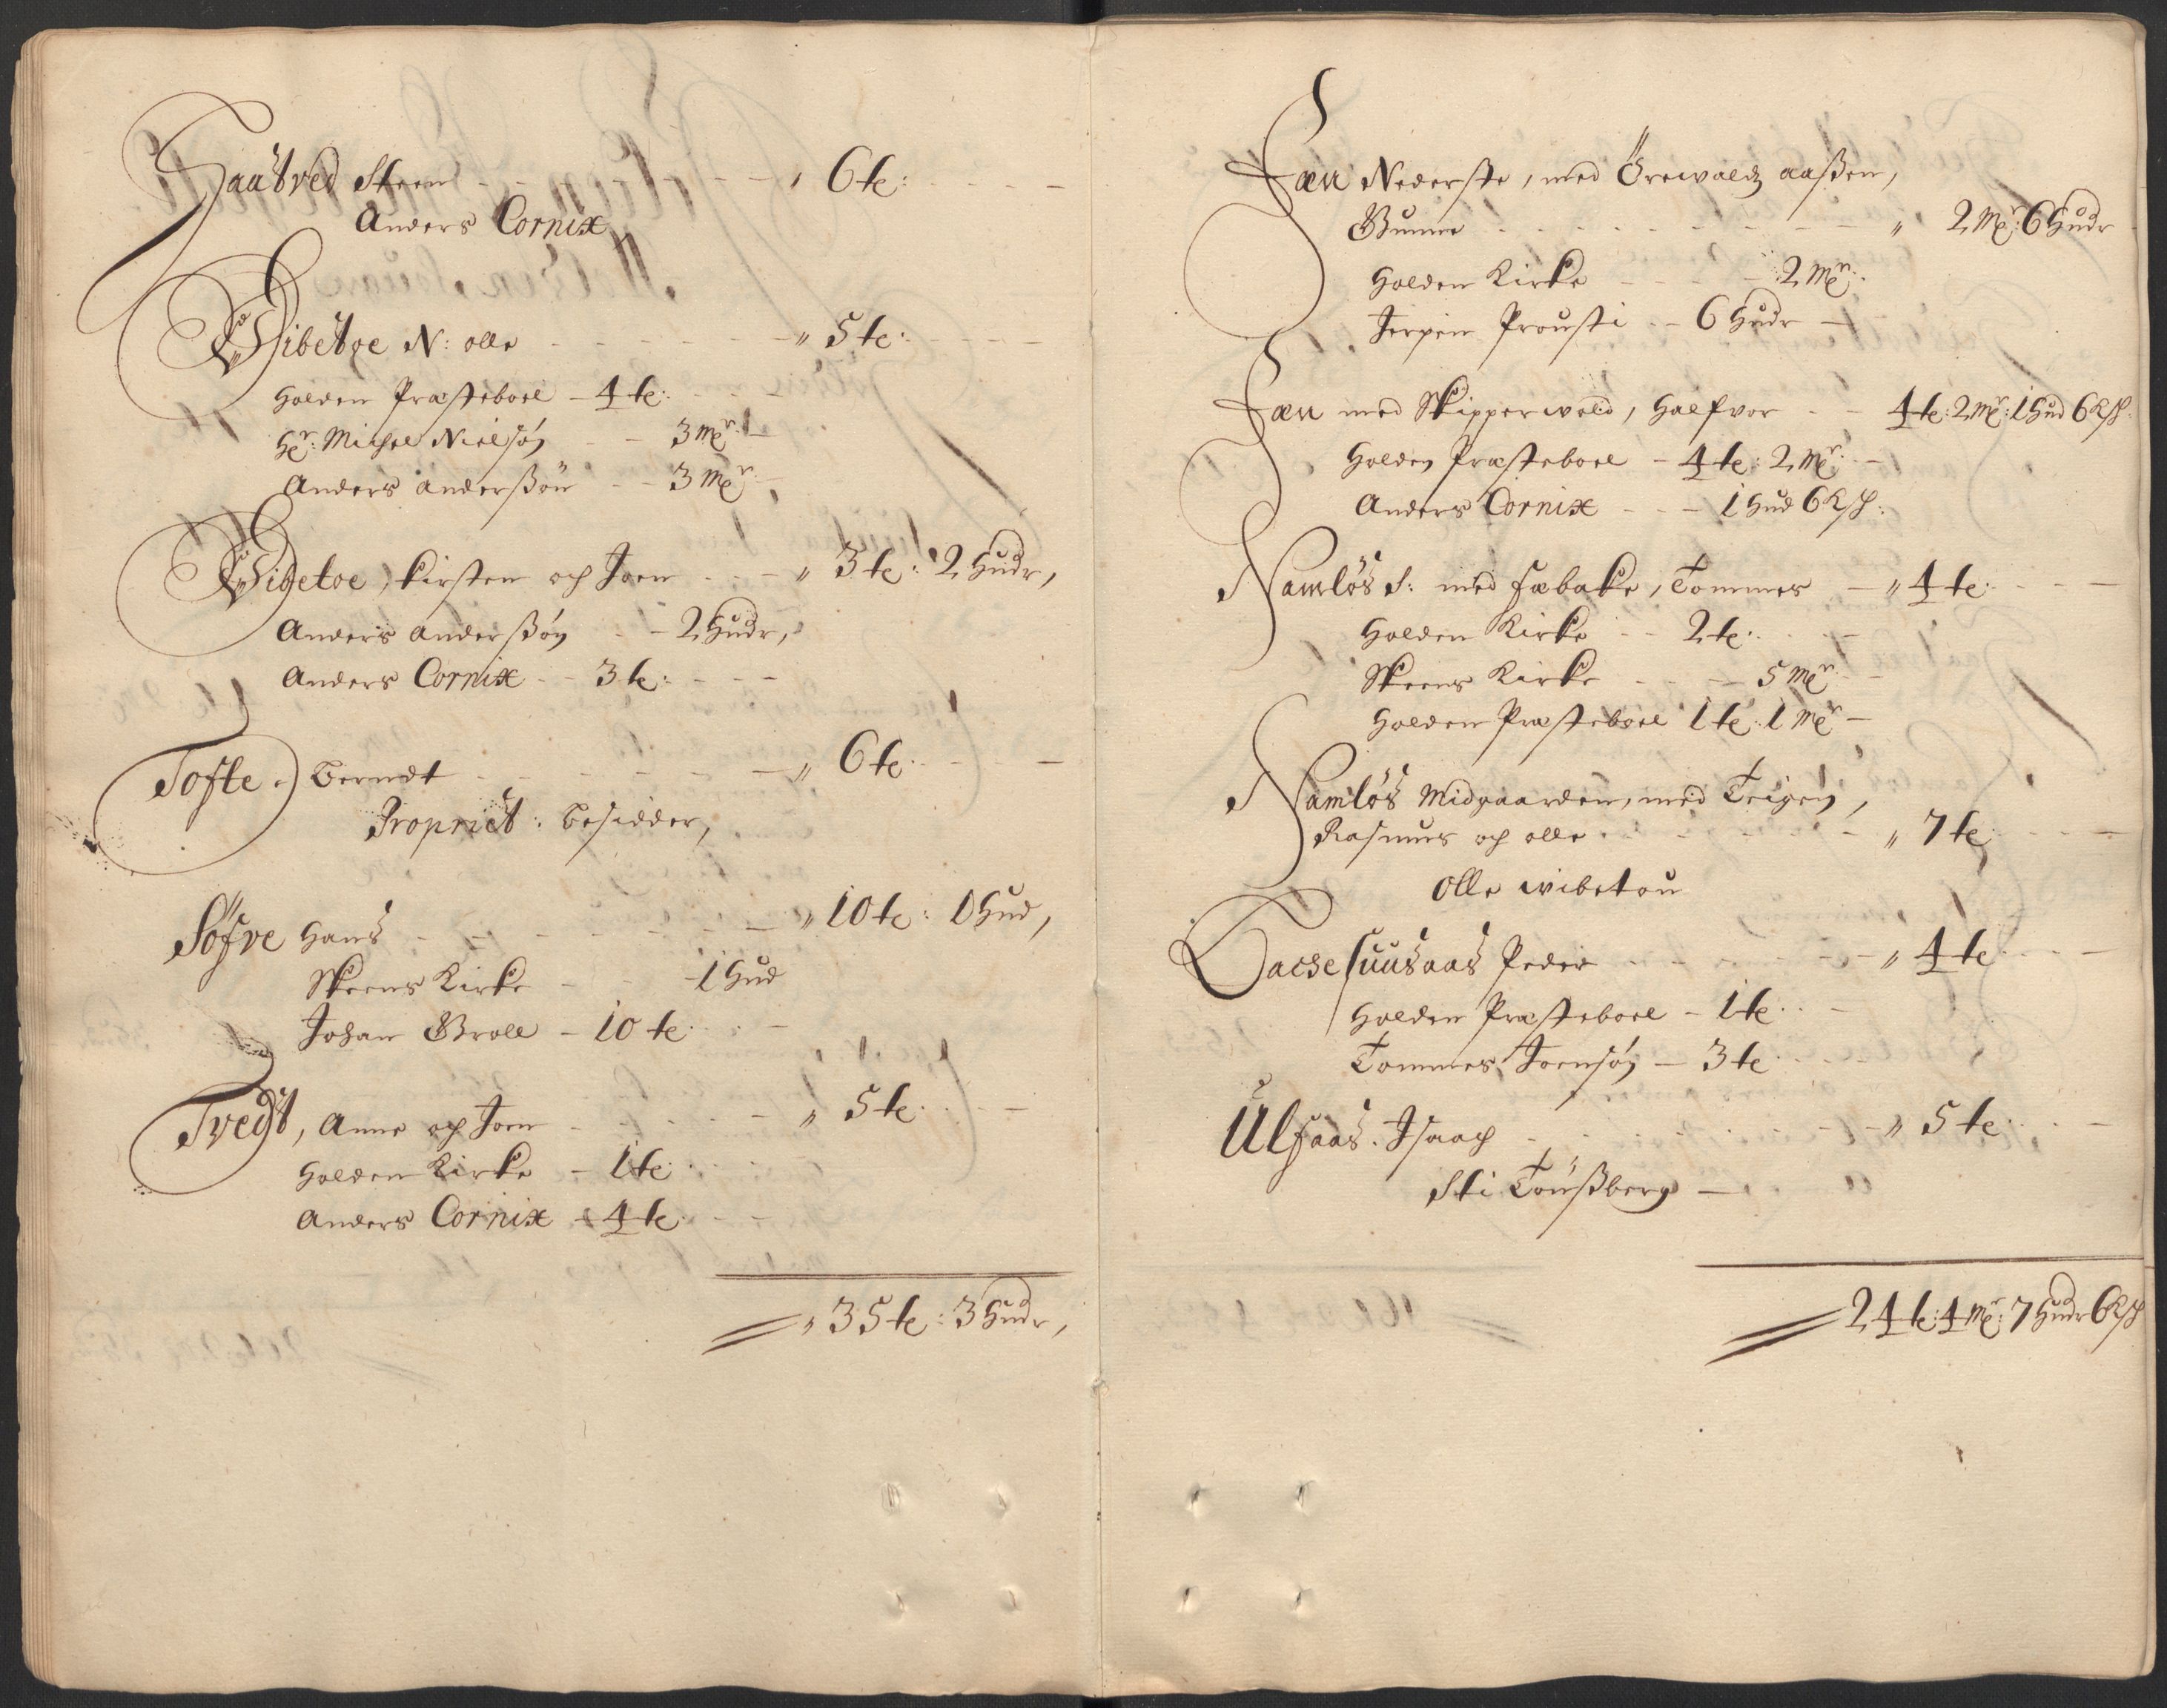 Saatved Steen - - - - - - - " 6 te:
Anders Cornix
Wibetoe N: olle - - - - - " 5 te:
Holden Præsteboel - 4 te:
Hr: Michel Nielsøn - - 3 mr: -
Anders Anderssøn - - 3 mr:
Wibetoe, Kirsten och Joen - - - " 3 te: 2 Hudr,
Anders Anderssøn - - 2 Hudr,
Anders Cornix - - 3 te: - - -
Tofte, Berndt - - - - - - " 6 te: - - -
Propriet: besidder,
Söfve Hans - - - - - - " 10 te: 1 Hud,
Skeens Kirke - - - 1 Hud
Johan Groll - 10 te: - -
Tvegt, Anne och Joen - - - - " 5 te: - -
Holden Kirke - 1 te: - -
Anders Cornix - 4 te: - -
" 35 te: 3 Hudr,
Fæn Nederste, med Örewaldz aassen,
Gunne - - - - - - - " 2 mr: 6 Hudr
Holden Kirke - - - - 2 mr:
Jerpin Prousti - - 6 Hudr -
Fæn med Skipperwold, Halfvor - - 4 te: 2 mr: 1 Hud 6 Ksk:
Holden Præsteboel - 4 te: 2 mr: -
Anders Cornix - - - 1 Hud 6 Ksk:
Namlös S: med fæbake, Tommes - " 4 te: - - -
Holden Kirke - - 2 te: - -
Skeens Kirke - - - 5 mr: -
Holden Præsteboel 1 te: 1 mr -
Namlös Midgaarden, med Teigen,
Rasmus och olle - - - - - " 7 te: - - -
Olle wibetou
Saasas Peder - - - - - " 4 te: - - -
Holden Præsteboel - 1 te: - -
Tommes Joensøn - 3 te: - -
Ulfaas. Isaach - - - - - - - " 5 te: - -
Sti Tonssberg -
24 te: 4 mr: 7 Hudr 6 Ksk